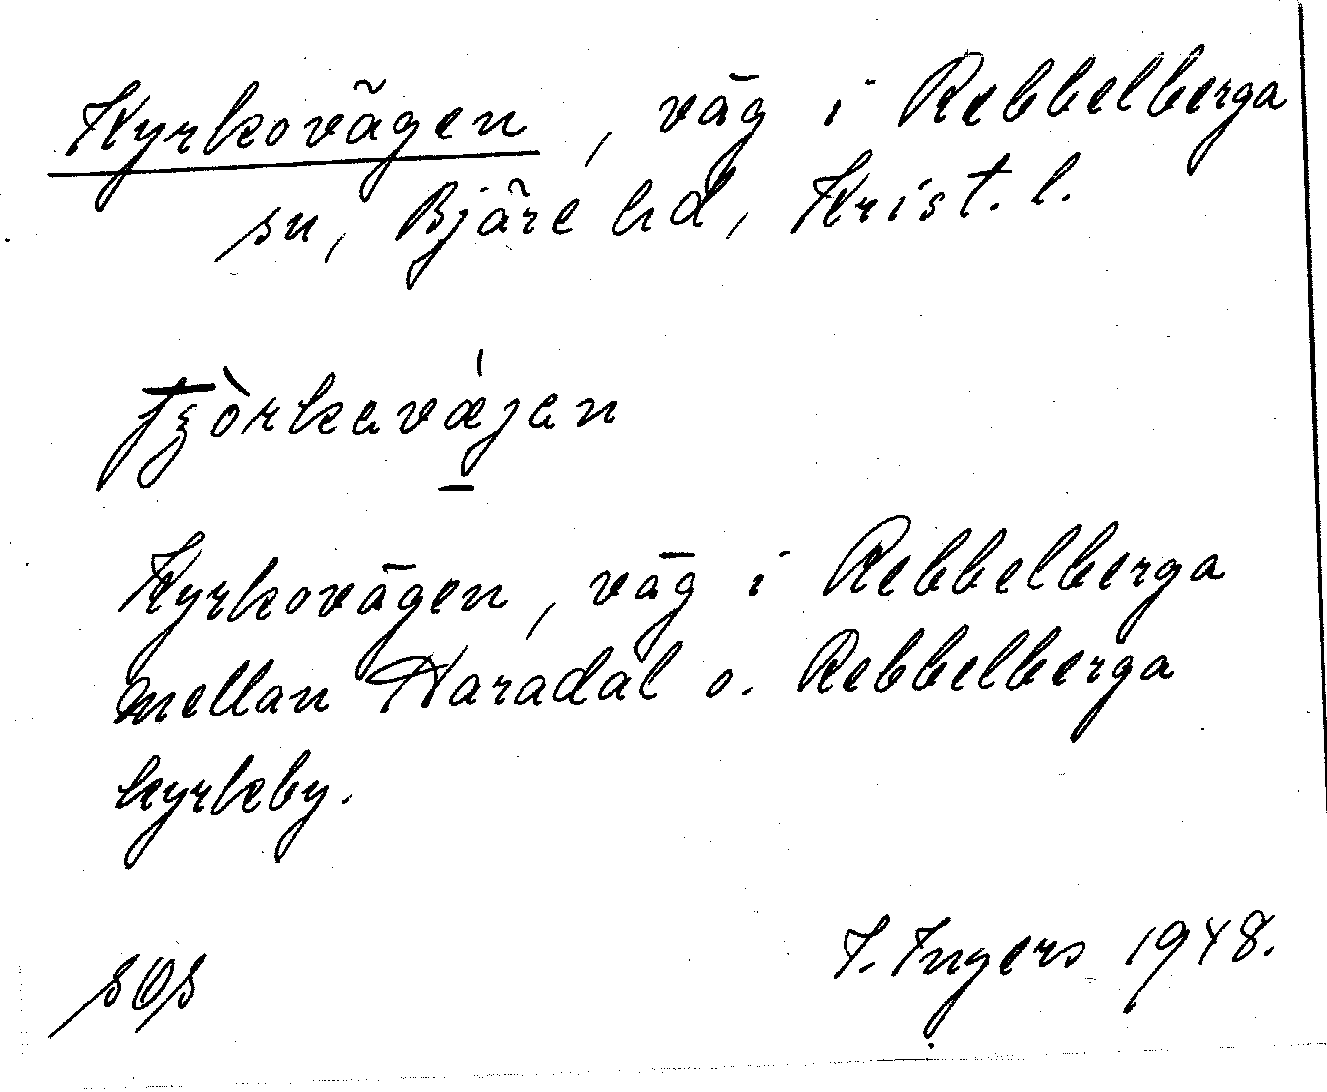 Kyrkovägen, väg i Rebbelberga
sn, Bjäre hd, Krist. l.
Kyrkovägen, väg i Rebbelberga
mellan Haradal o. Rebbelberga
kyrkby.
I. Ingers 1948.
SOS